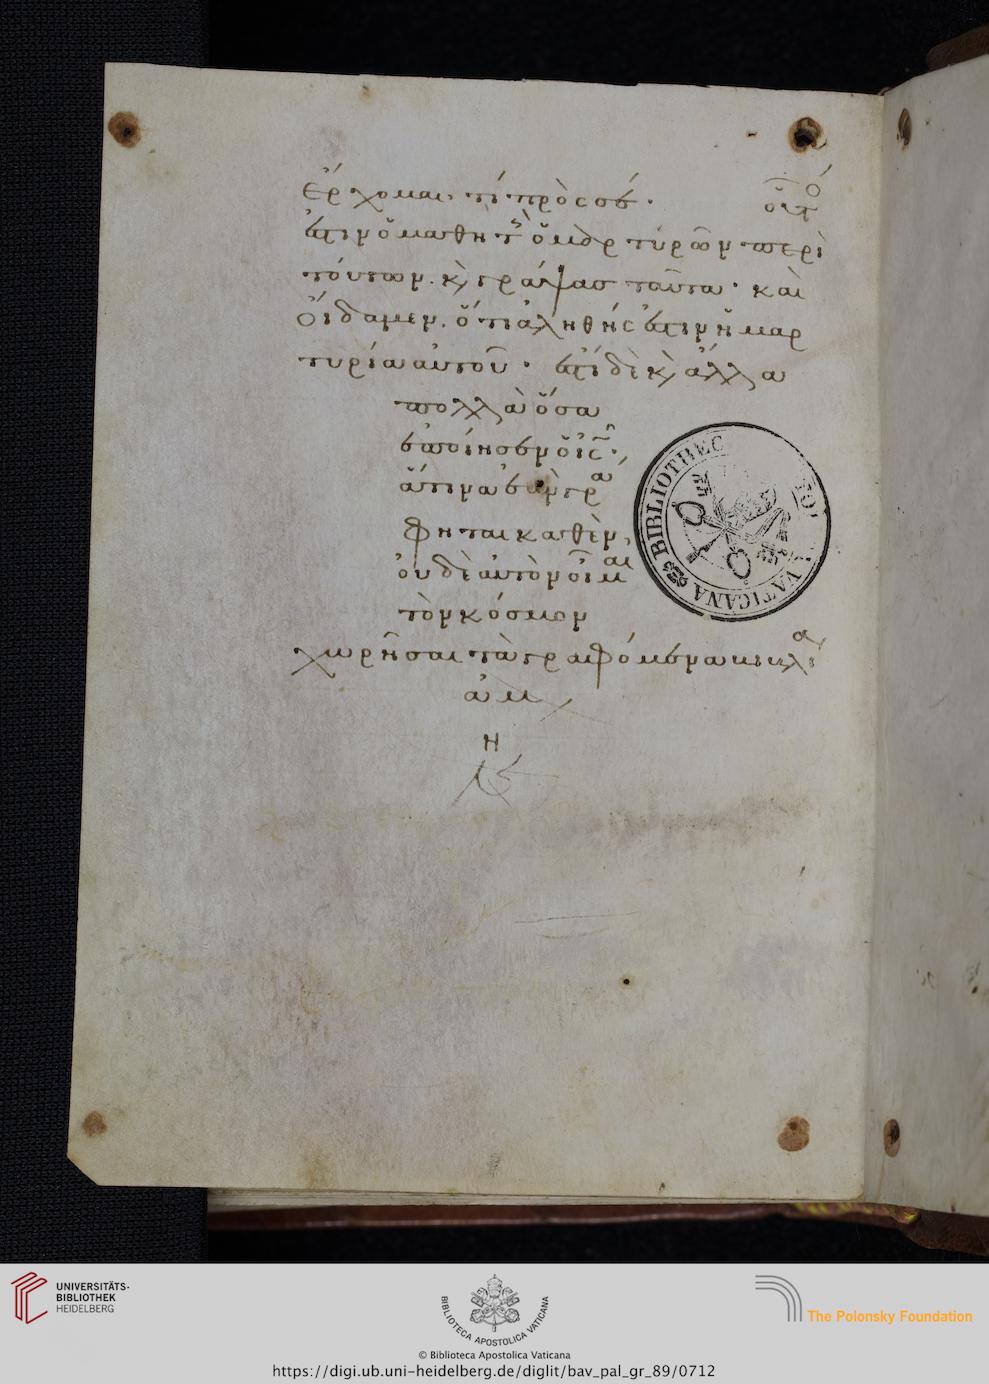 ἔρχομαι· τί πρὸς σέ· οὗτ ό
ἐστιν ὁ μαθητ ὁ μαρτυρῶν περὶ
τούτων· κ γράψας ταῦτα· καὶ
οἴδαμεν· ὅτι ἀληθής ἐστιν ἡ μαρ
τυρία αὐτοῦ· ἔστι δὲ κ ἄλλα
πολλὰ ὅσα
ἐποίησεν ὁ ις·
ἅτινα ἐὰν γρά
φηται καθὲν,
οὐδὲ αὐτὸν οἶμαι
τὸν κόσμον
χωρῆσαι τὰ γραφόμενα βιβλία
ἀμ
η
ν
BIBLIOTHEC
VATICANA
UNIVERSITÄTS-
BIBLIOTHEK
HEIDELBERG
BIBLIOTECA APOSTOLICA VATICANA
The Polonsky Foundation
© Biblioteca Apostolica Vaticana
https://digi.ub.uni-heidelberg.de/diglit/bav_pal_gr_89/0712